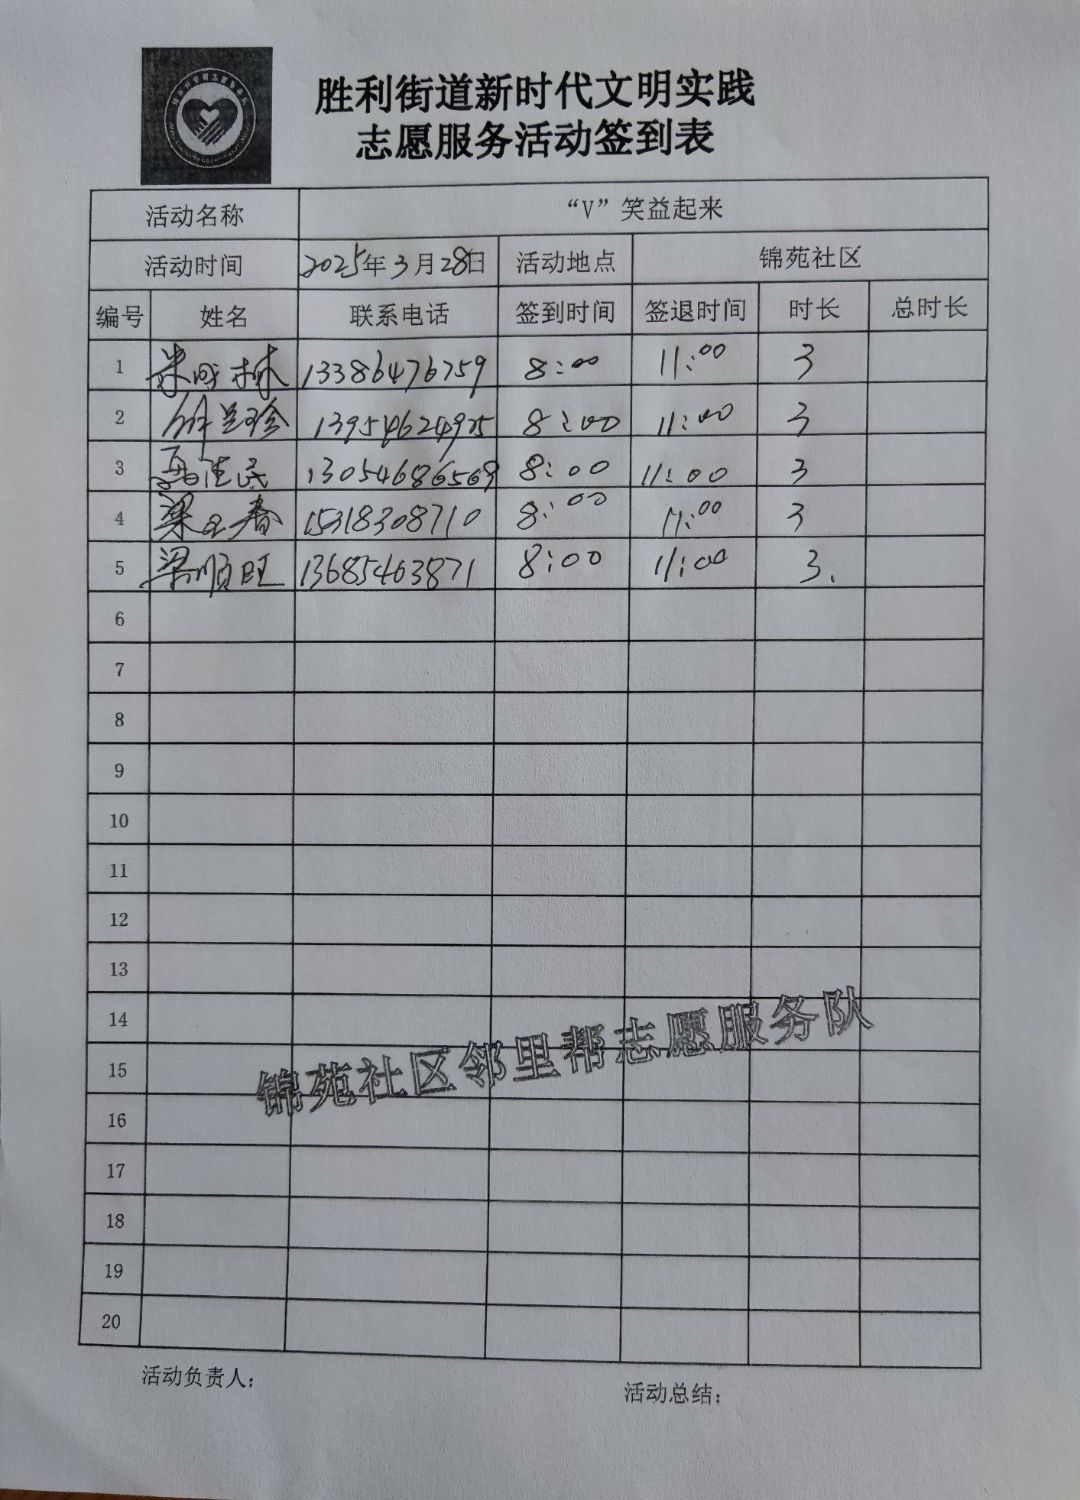 胜利街道新时代文明实践
志愿服务活动签到表
活动名称 “V”笑益起来
活动时间 2025年3月28日 活动地点 锦苑社区
编号 姓名 联系电话 签到时间 签退时间 时长 总时长
1 林 13386476759 8:00 11:00 3
2 13954624925 8:00 11:00 3
3 民 13054686569 8:00 11:00 3
4 梁 春 15318308710 8:00 11:00 3
5 梁顺旺 13685463871 8:00 11:00 3.
6
7
8
9
10
11
12
13
14
15
16
17
18
19
20
锦苑社区邻里帮志愿服务队
活动负责人:
活动总结: